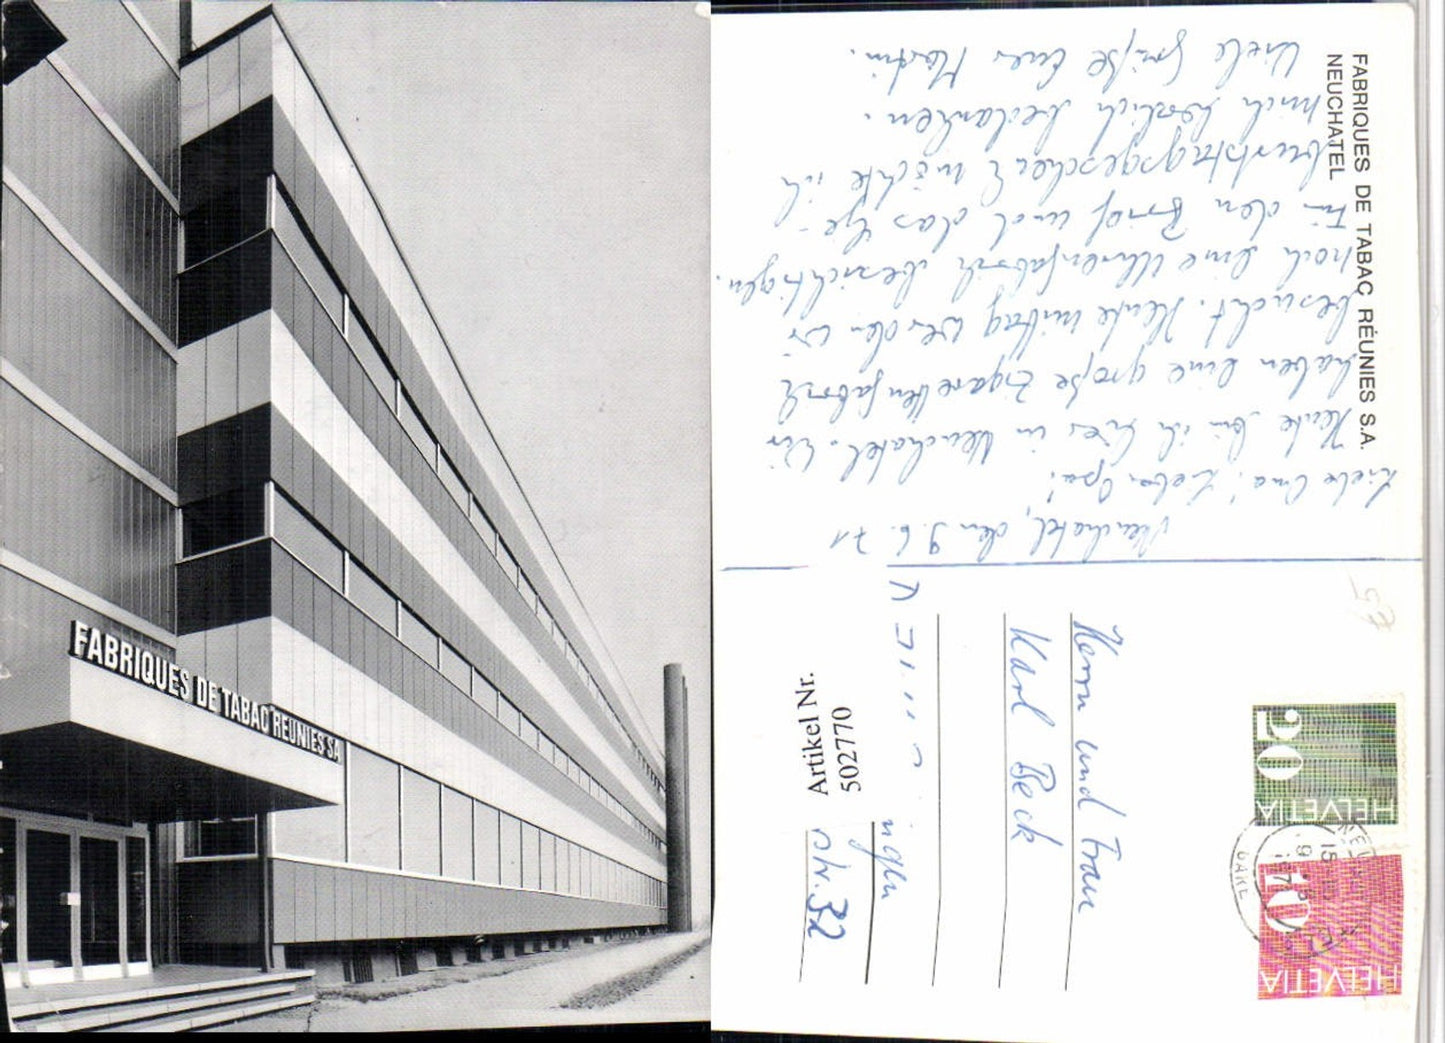 FABRIQUES DE TABAC REUNIES SA
FABRIQUES DE TABAC RÉUNIES S.A.
NEUCHATEL
Neuchatel, den 9.6.71
Liebe Oma! Lieber Opa!
Heute bin ich hier in Neuchatel. Wir
haben eine große Zigarettenfabrik
besucht. Heute mittag werden wir
noch eine Uhrenfabrik besichtigen.
Für den Brief und das Ge-
burtstagsgeschenk möchte ich
mich herzlich bedanken.
Viele Grüße Euer Martin.
Herrn und Frau
Karl Beck
D 71
ingen
Nr. 32
Artikel Nr.
502770
20
HELVETIA
10
HELVETIA